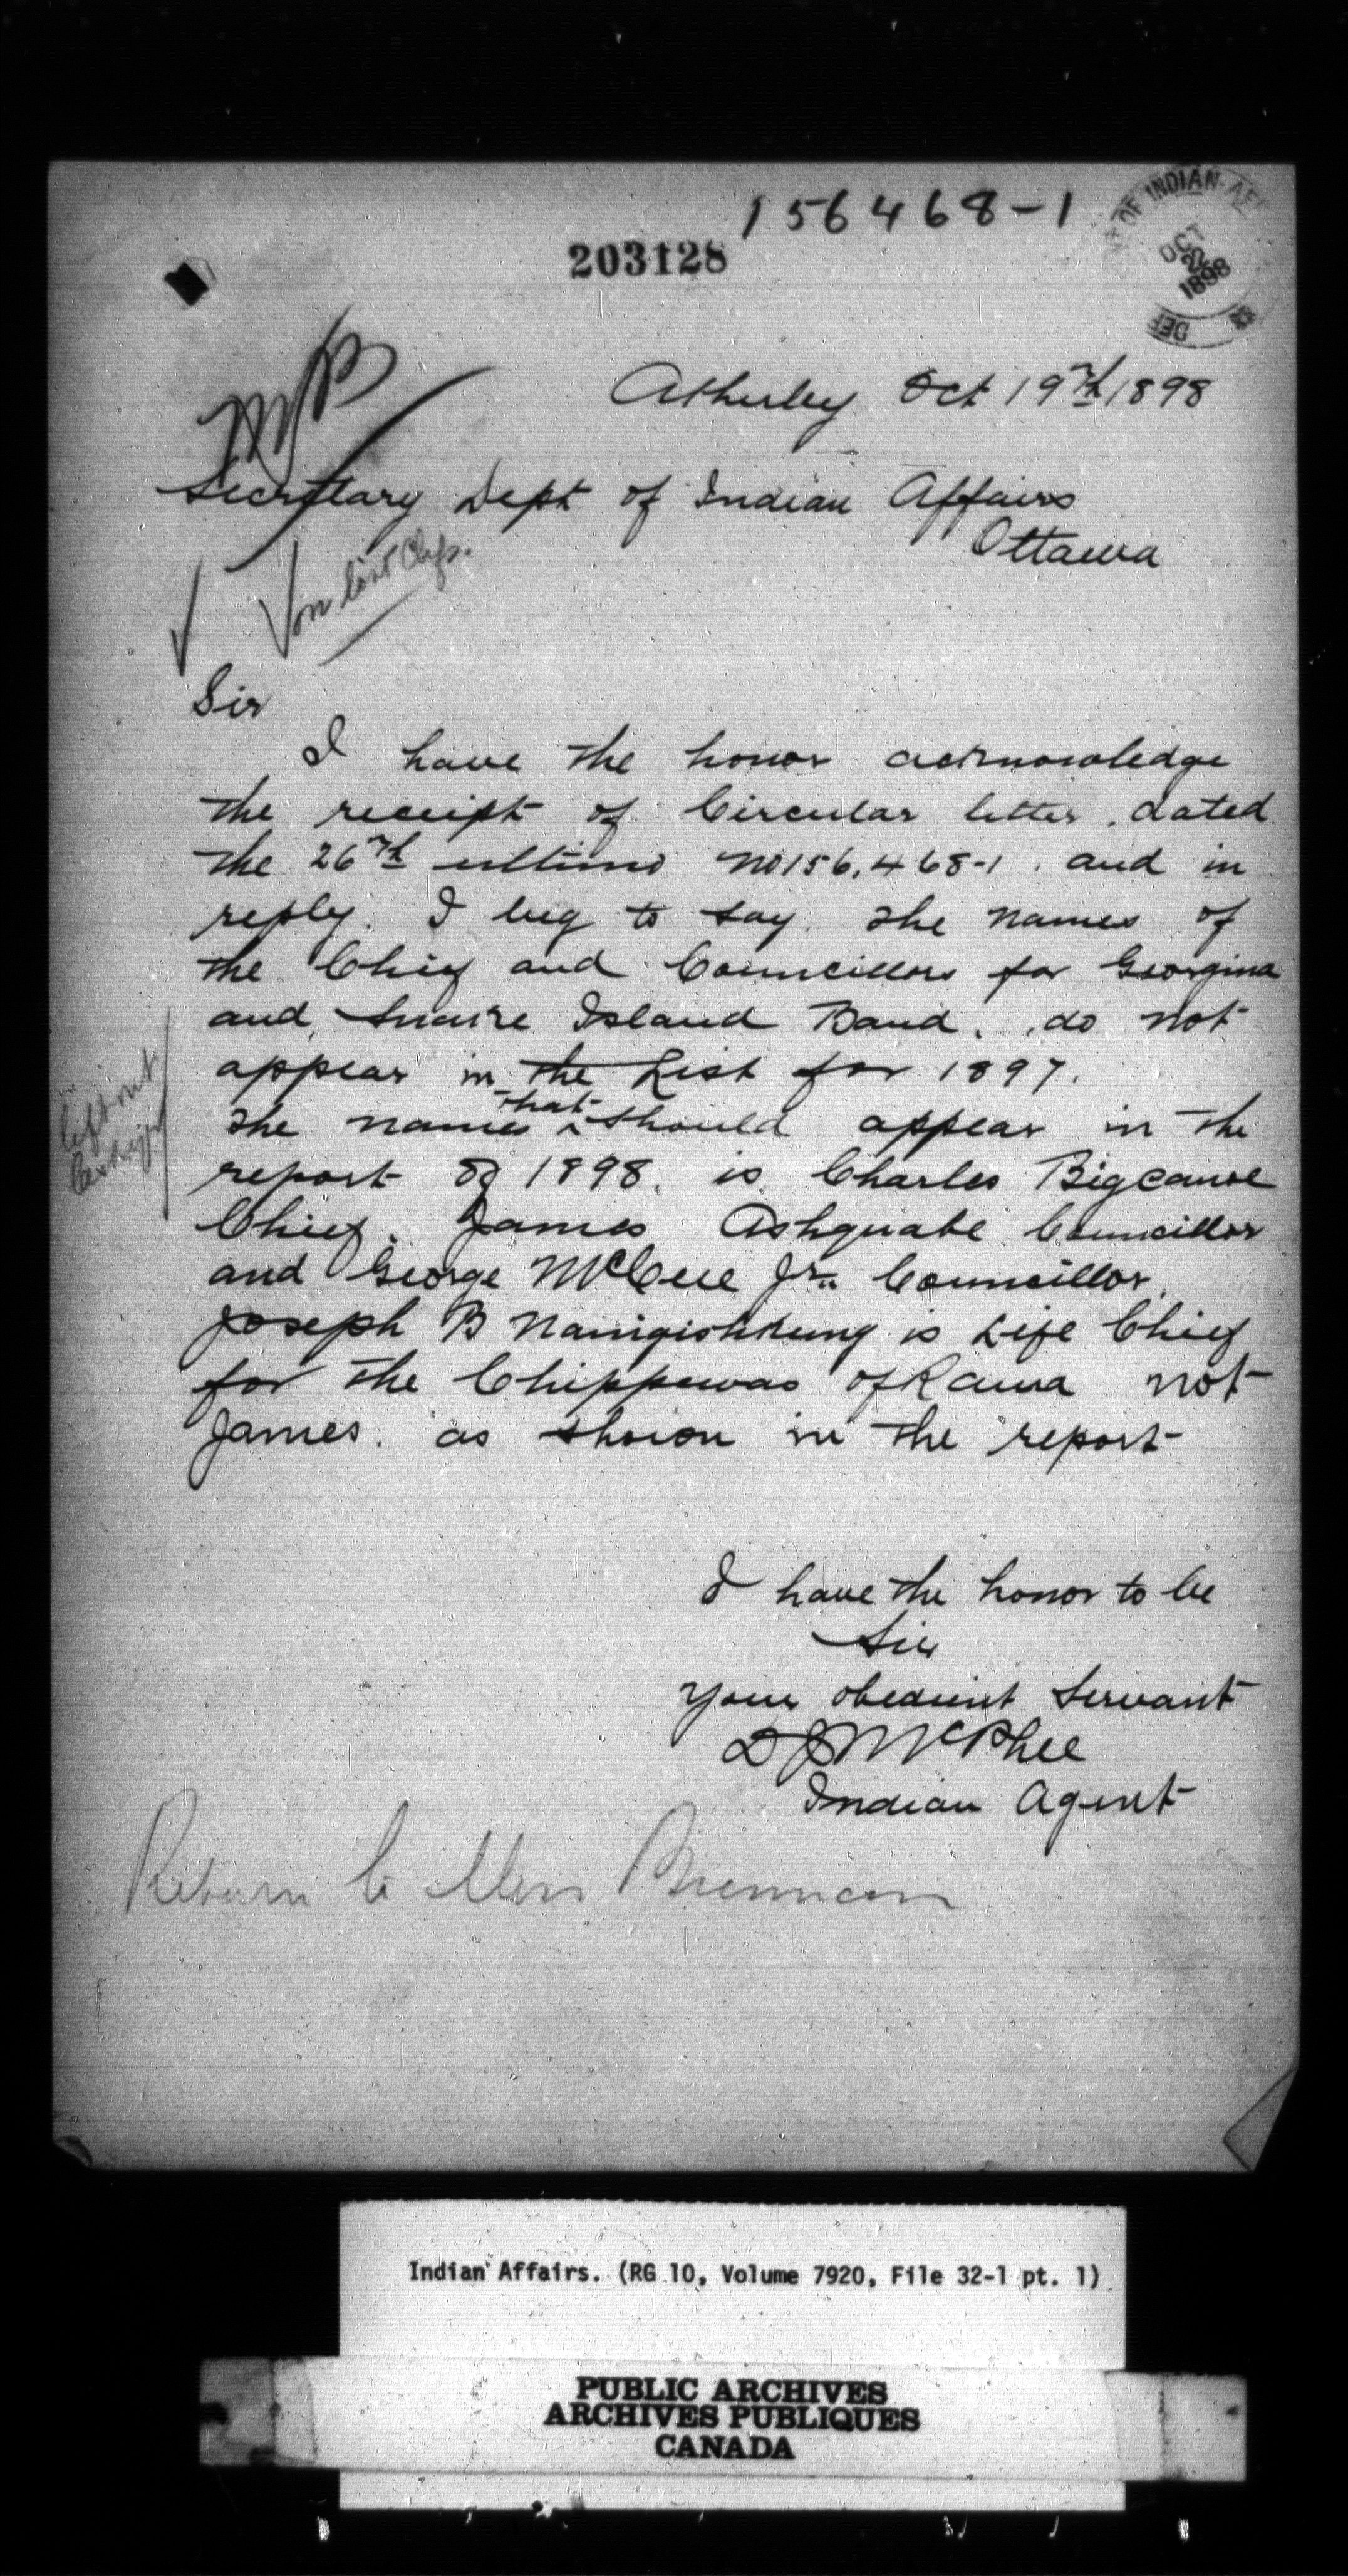 156468-1
203128
DEPT OF INDIAN AFF
OCT
22
1898
Atherley Oct 19th 1898
Secretary Dept of Indian Affairs
Ottawa
Sir
I have the honor acknowledge
the receipt of Circular letter dated
the 26th ultimo No 156,468-1 and in
reply. I beg to say the names of
the Chief and Councillors for Georgina
and Snake Island Band, do not
appear in the List for 1897.
left out
The names that should appear in the
report of 1898. is Charles Bigcanoe
Chief. James Ashquabe Councillor
and George McCue Jr. Councillor
Joseph B Nanigishkung is Life Chief
for the Chippewas of Rama not
James. as shown in the report
I have the honor to be
Sir
Your obedient Servant
D J McPhee
Indian Agent
Return to Miss Brennan
Indian Affairs. (RG 10, Volume 7920, File 32-1 pt. 1)
PUBLIC ARCHIVES
ARCHIVES PUBLIQUES
CANADA